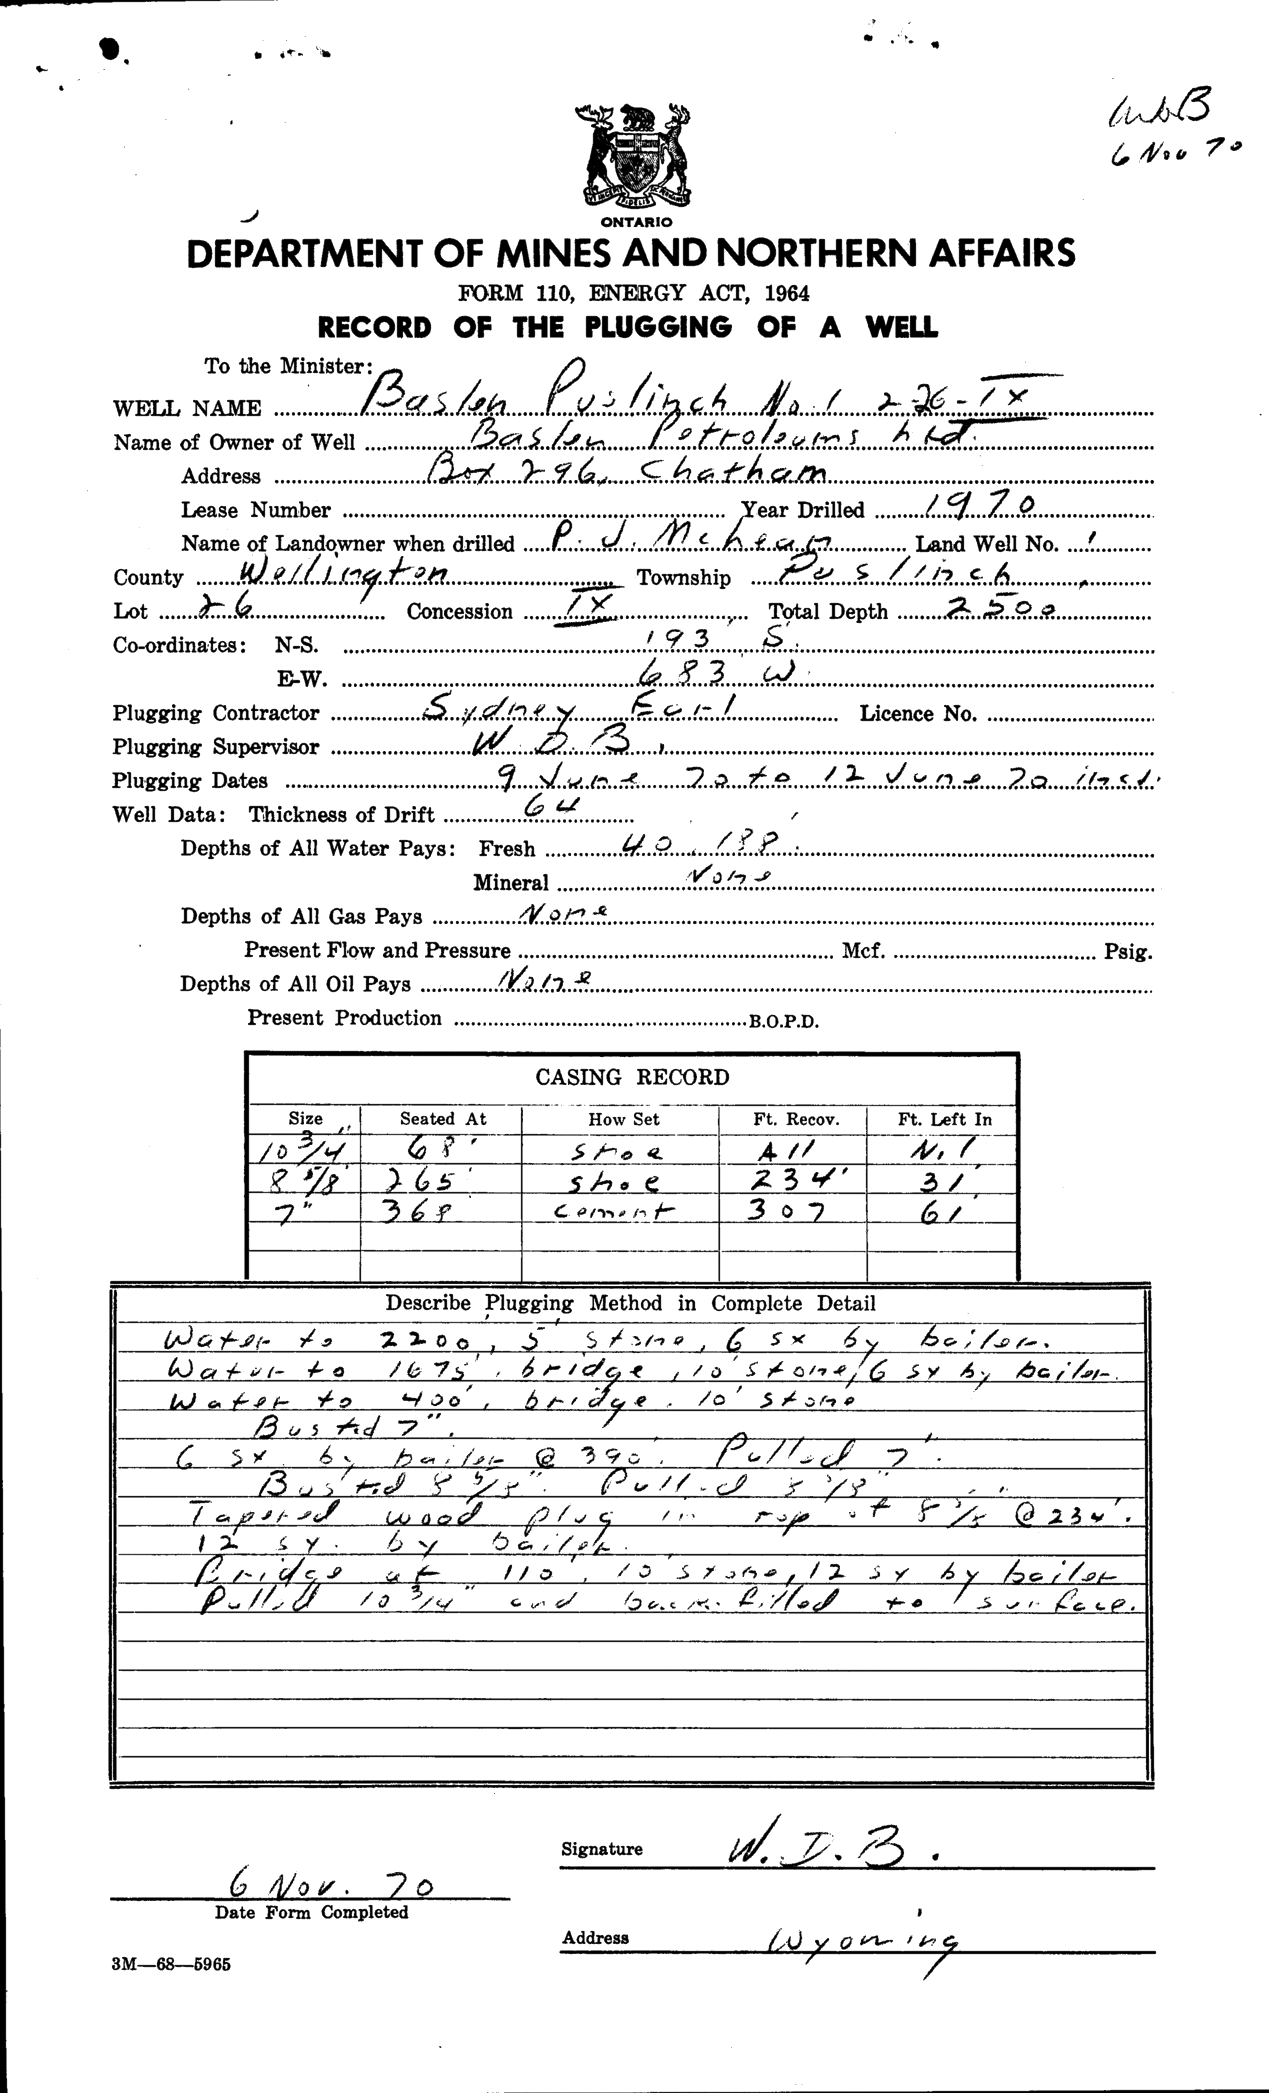 WDB
6 Nov 70
ONTARIO
DEPARTMENT OF MINES AND NORTHERN AFFAIRS
FORM 110, ENERGY ACT, 1964
RECORD OF THE PLUGGING OF A WELL
To the Minister:
WELL NAME Baslen Puslinch No. 1 2-26-IX
Name of Owner of Well Baslen Petroleums Ltd.
Address Box 296, Chatham
Lease Number Year Drilled 1970
Name of Landowner when drilled P. J. McLean Land Well No. 1
County Wellington Township Puslinch
Lot 26 Concession IX Total Depth 2500
Co-ordinates: N-S. 193' S.
E-W. 683 W.
Plugging Contractor Sydney Earl Licence No.
Plugging Supervisor W. D. B.
Plugging Dates 9 June 70 to 12 June 70 incl.
Well Data: Thickness of Drift 64
Depths of All Water Pays: Fresh 40, 188'.
Mineral None
Depths of All Gas Pays None
Present Flow and Pressure Mcf. Psig.
Depths of All Oil Pays None
Present Production B.O.P.D.
CASING RECORD
Size Seated At How Set Ft. Recov. Ft. Left In
10 3/4" 68' shoe All Nil
8 5/8 265' shoe 234' 31'
7" 368 cement 307 61'
Describe Plugging Method in Complete Detail
Water to 2200, 5' stone, 6 sx by bailer.
Water to 1675', bridge, 10' stone, 6 sx by bailer.
Water to 400', bridge, 10' stone
Busted 7".
6 sx by bailer @ 390'. Pulled 7".
Busted 8 5/8". Pulled 8 5/8"
Tapered wood plug in top of 8 5/8 @ 234'.
12 sx. by bailer.
Bridge at 110', 10' stone, 12 sx by bailer
Pulled 10 3/4" and backfilled to surface.
Signature W. D. B.
6 Nov. 70
Date Form Completed
Address Wyoming
3M—68—5965